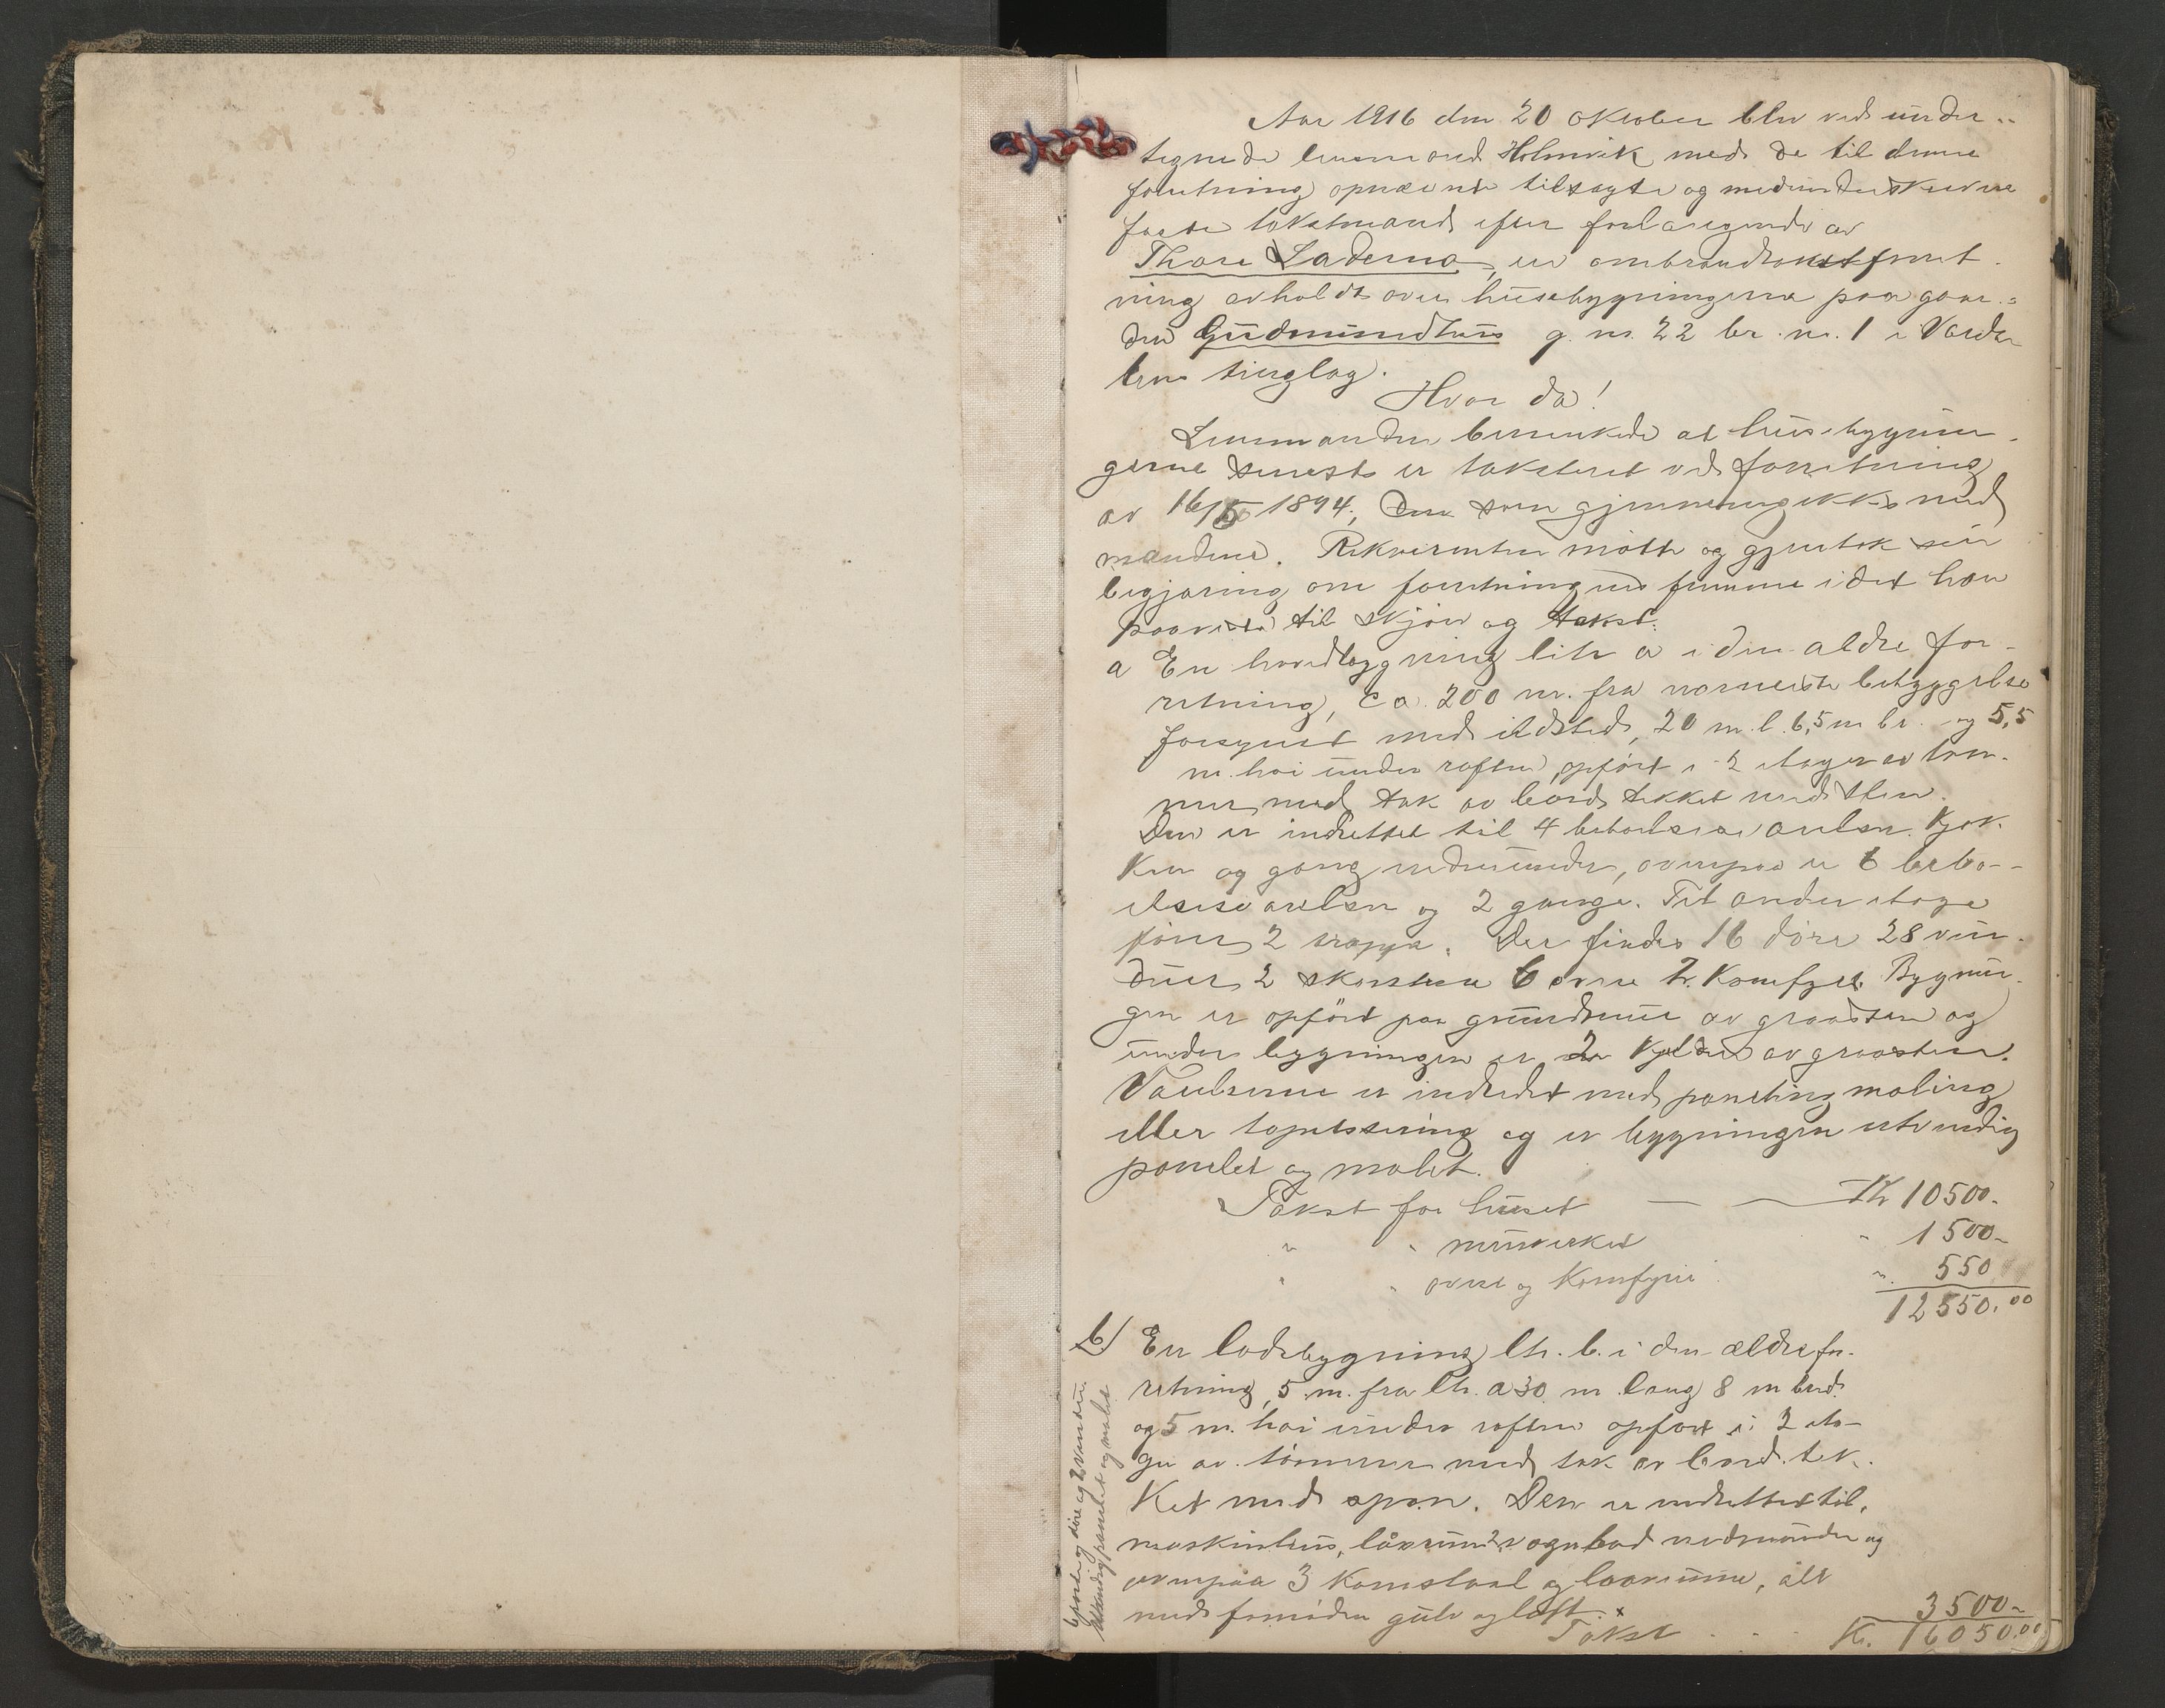 Aar 1916 den 20 oktober blev ved under-
tegnede lensmand Holmvik med de til denne
forretning opnævnte tilsagte og medunderskrevne
faste takstmænd efter forlangende av
Thore Laderno en ombrandtakstforret-
ning avholdt over husebygningerne paa gaar-
den Gudmundhus g. nr. 22 br. nr. 1 i Værda-
lens tinglag.
Hvor da!
Lensmanden bemerkede at husebygnin-
gerne senest er takstert ved forretning
av 16/5 1894, den som gjennemgikkes med
mændene. Rekvirenten møtte og gjentok sin
begjæring om forretningens fremme idet han
paaviste til skjøn og takst:
a En hovedbygning litr a i den ældre for-
retning, ca. 200 m. fra nærmeste bebyggelse
forsynet med ildsted, 20 m. l. 6,5 m br. og 5,5
m. høi under raften, opført i 2 etager av tøm-
mer med tak av bord tekket med sten.
Den er indrettet til 4 beboelsesværelser. Kjøk-
ken og gang nedenunder, ovenpaa er 6 bebo-
elsesværelser og 2 gange. Til anden etage
fører 2 trapper. Der findes 16 døre 28 vin-
duer 2 skorstene 6 ovne 2 Komfyrer. Bygnin-
gen er opført paa grundmur av graasten og
under bygningen er 2 kjeldere av graasten.
Værelserne er indredet med paneling maling
eller tapetsering og er bygningen utvendig
panelet og malet.
Takst for huset — — Kr 10500.-
" " murverket " 1500-
" " ovne og Komfyrer " 550
12550.00
b) En ladebygning ltr. b. i den ældre for-
retning, 5 m. fra ltr. a 30 m lang 8 m bred
og 5 m. høi under raften opført i 2 eta-
ger av tømmer med tak av bord tek-
ket med spon. Den er indrettet til
maskinhus, låverum 2 vognbod nedenunder og
ovenpaa 3 Kornstaal og laaverum, alt
med fornøden gulv og loft. x
Takst - - - 3500-
Kr. 16050.00
6 porter og døre og 2 vinduer.
Utvendig panelet og malet